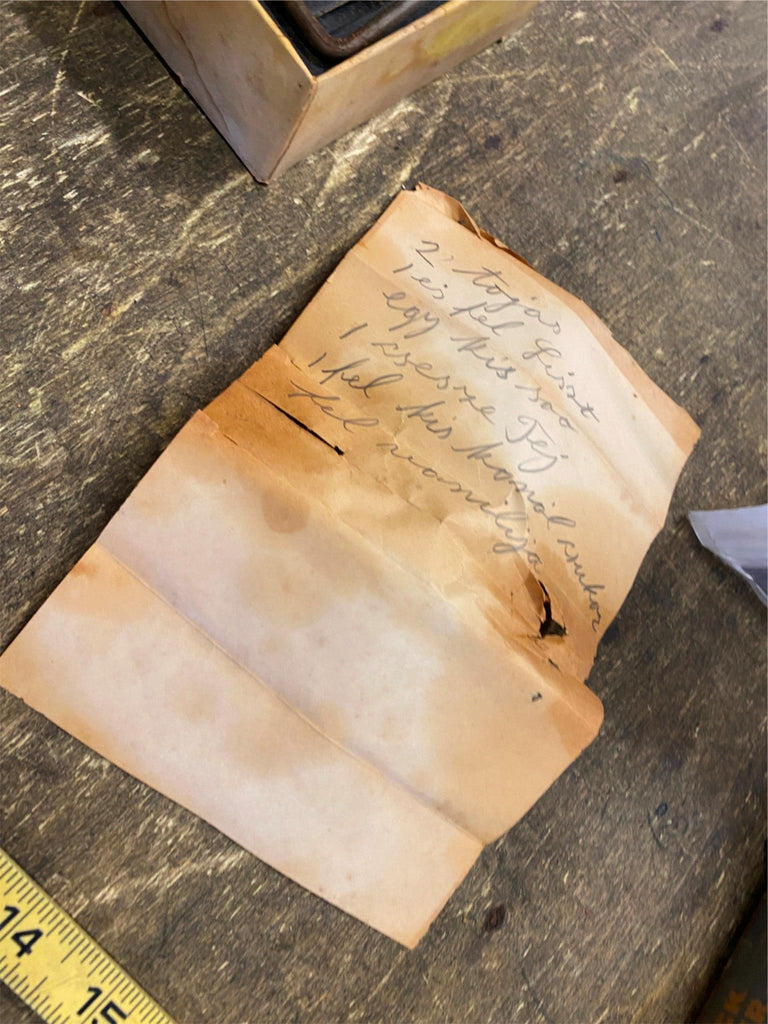 2, tojás
1 és fél Liszt
egy kis soo
1 csésze Tej
1 fél kis kanál cukor
fél vanilija
14
15